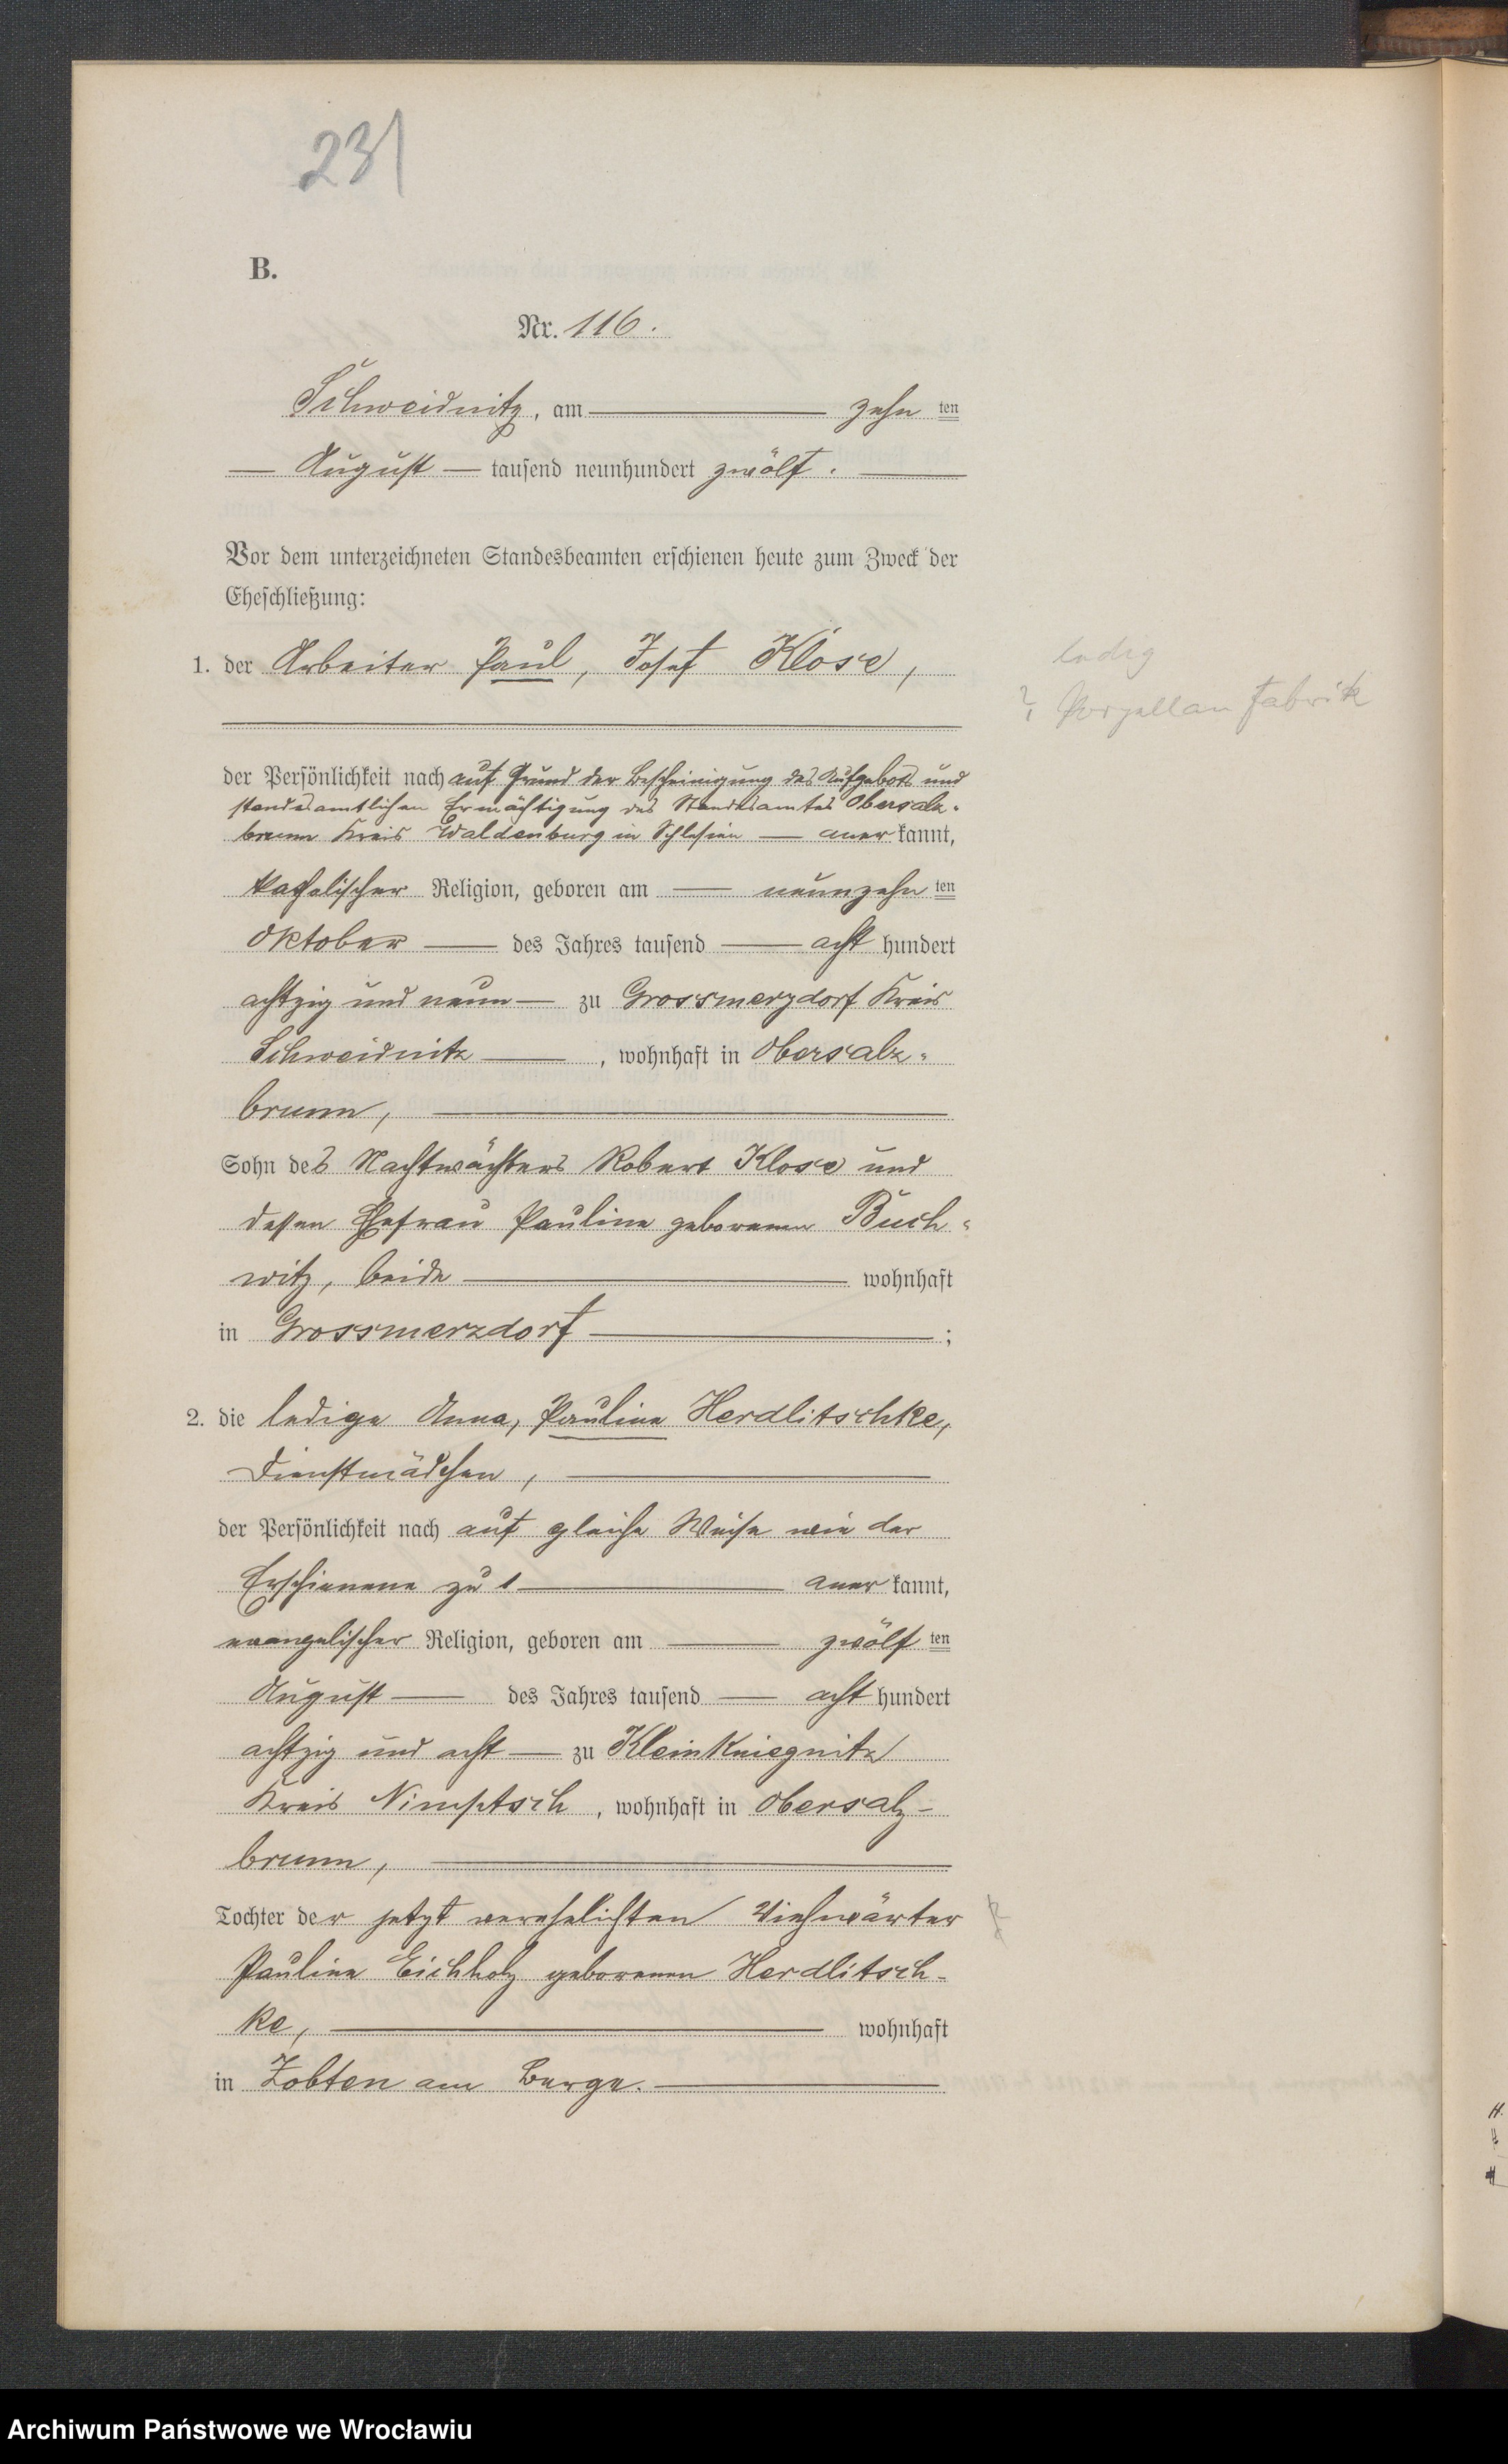 231
B.
Nr. 116.
Schweidnitz, am — zehn ten
— August — tausend neunhundert zwölf. —
Vor dem unterzeichneten Standesbeamten erschienen heute zum Zweck der
Eheschließung:
1. der Arbeiter Paul, Josef Klose,
ledig
? Porzellanfabrik
der Persönlichkeit nach auf Grund der Bescheinigung des Aufgebots und
standesamtlichen Ermächtigung des Standesamtes Obersalz-
brunn Kreis Waldenburg in Schlesien — anerkannt,
katholischer Religion, geboren am — neunzehn ten
Oktober — des Jahres tausend — acht hundert
achtzig und neun — zu Grossmerzdorf Kreis
Schweidnitz —, wohnhaft in Obersalz-
brunn, —
Sohn des Nachtwächters Robert Klose und
dessen Ehefrau Pauline geborenen Buch-
witz, beide — wohnhaft
in Grossmerzdorf — ;
2. die ledige Anna, Pauline Herdlitschke,
Dienstmädchen, —
der Persönlichkeit nach auf gleiche Weise wie der
Erschienene zu 1 — anerkannt,
evangelischer Religion, geboren am — zwölf ten
August — des Jahres tausend — acht hundert
achtzig und acht — zu Kleinkniegnitz
Kreis Nimptsch, wohnhaft in Obersalz-
brunn, —
Tochter der jetzt verehelichten Viehwärter
Pauline Eichholz geborenen Herdlitsch-
ke, — wohnhaft
in Zobten am Berge. —
Archiwum Państwowe we Wrocławiu